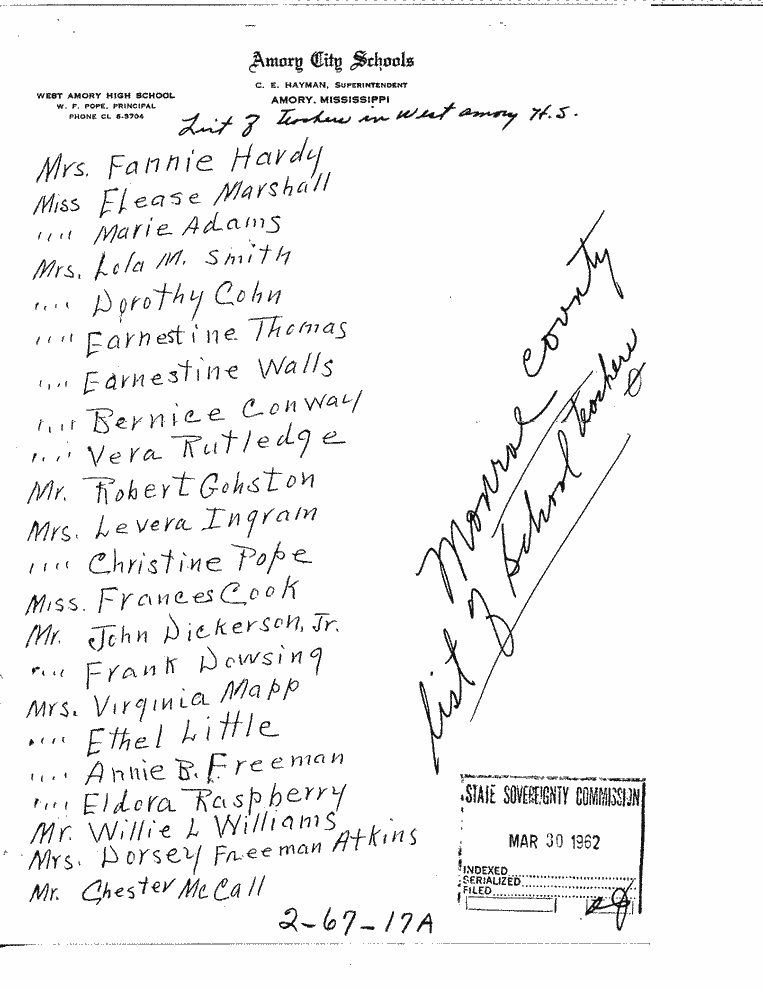 Amory City Schools
C. E. HAYMAN, SUPERINTENDENT
AMORY, MISSISSIPPI
WEST AMORY HIGH SCHOOL
W. F. POPE, PRINCIPAL
PHONE CL 6-3704
List of Teachers in West Amory H.S.
Mrs. Fannie Hardy
Miss Elease Marshall
"" Marie Adams
Mrs. Lola M. Smith
"" Dorothy Cohn
"" Earnestine Thomas
"" Earnestine Walls
"" Bernice Conway
"" Vera Rutledge
Mr. Robert Gohston
Mrs. Levera Ingram
"" Christine Pope
Miss. Frances Cook
Mr. John Dickerson, Jr.
"" Frank Dowsing
Mrs. Virginia Mapp
"" Ethel Little
"" Annie B. Freeman
"" Eldora Raspberry
Mr. Willie L Williams
Mrs. Dorsey Freeman Atkins
Mr. Chester McCall
Monroe County
list of School Teachers
STATE SOVEREIGNTY COMMISSION
MAR 30 1962
INDEXED
SERIALIZED
FILED
2-67-17A